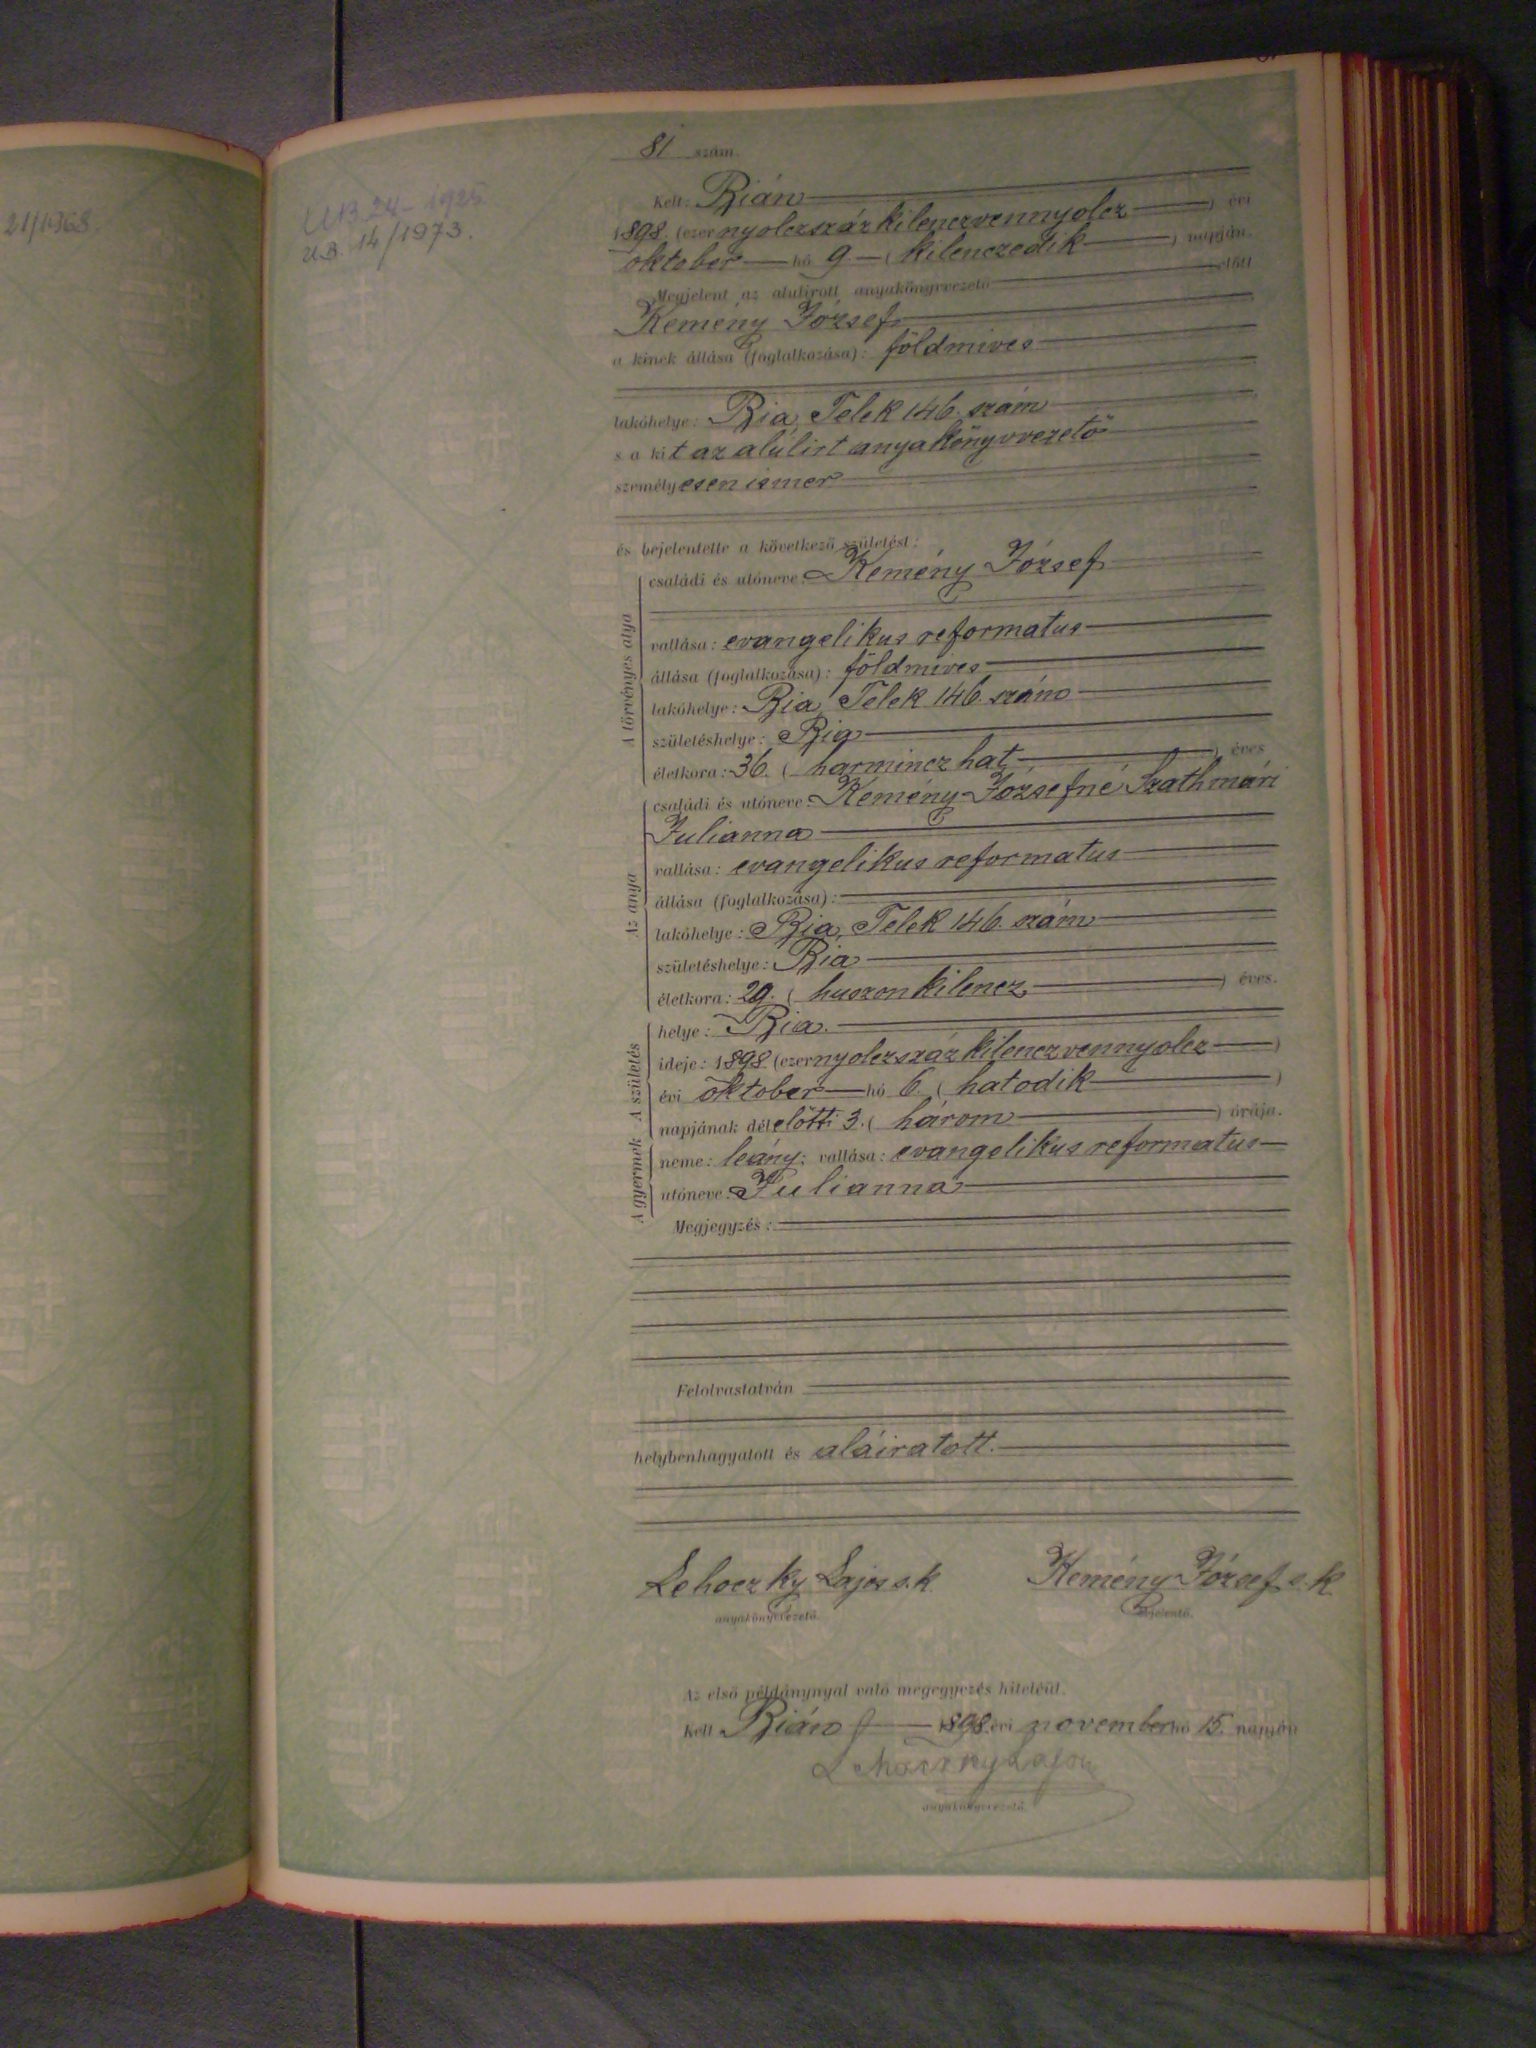 21/1968.
UB 24-1925.
U.B. 14/1973.
81 szám.
Kelt: Bián
1898. (ezernyolczszázkilenczvennyolcz) évi
oktober hó 9 (kilenczedik) napján.
Megjelent az alulirott anyakönyvvezető előtt
Kemény József
a kinek állása (foglalkozása): földmives
lakóhelye: Bia, Telek 146. szám
s a kit az alúlirt anyakönyvvezető
személyesen ismer
és bejelentette a következő születést:
A törvényes atya
családi és utóneve: Kemény József
vallása: evangelikus reformatus
állása (foglalkozása): földmives
lakóhelye: Bia, Telek 146. szám
születéshelye: Bia
életkora: 36. (harmincz hat) éves
Az anya
családi és utóneve: Kemény Józsefné Szathmári
Julianna
vallása: evangelikus reformatus
állása (foglalkozása):
lakóhelye: Bia, Telek 146. szám
születéshelye: Bia
életkora: 29. (huszonkilencz) éves.
A születés
helye: Bia.
ideje: 1898 (ezernyolczszázkilenczvennyolcz)
évi oktober hó 6. (hatodik)
napjának délelőtti 3. (három) órája.
A gyermek
neme: leány; vallása: evangelikus reformatus
utóneve: Julianna
Megjegyzés:
Felolvastatván
helybenhagyatott és aláiratott.
Lehoczky Lajos s.k. Kemény József s.k.
anyakönyvvezető. bejelentő.
Az első példánynyal való megegyezés hiteléül.
Kelt Bián 1898. évi november hó 15. napján
Lehoczky Lajos
anyakönyvvezető.